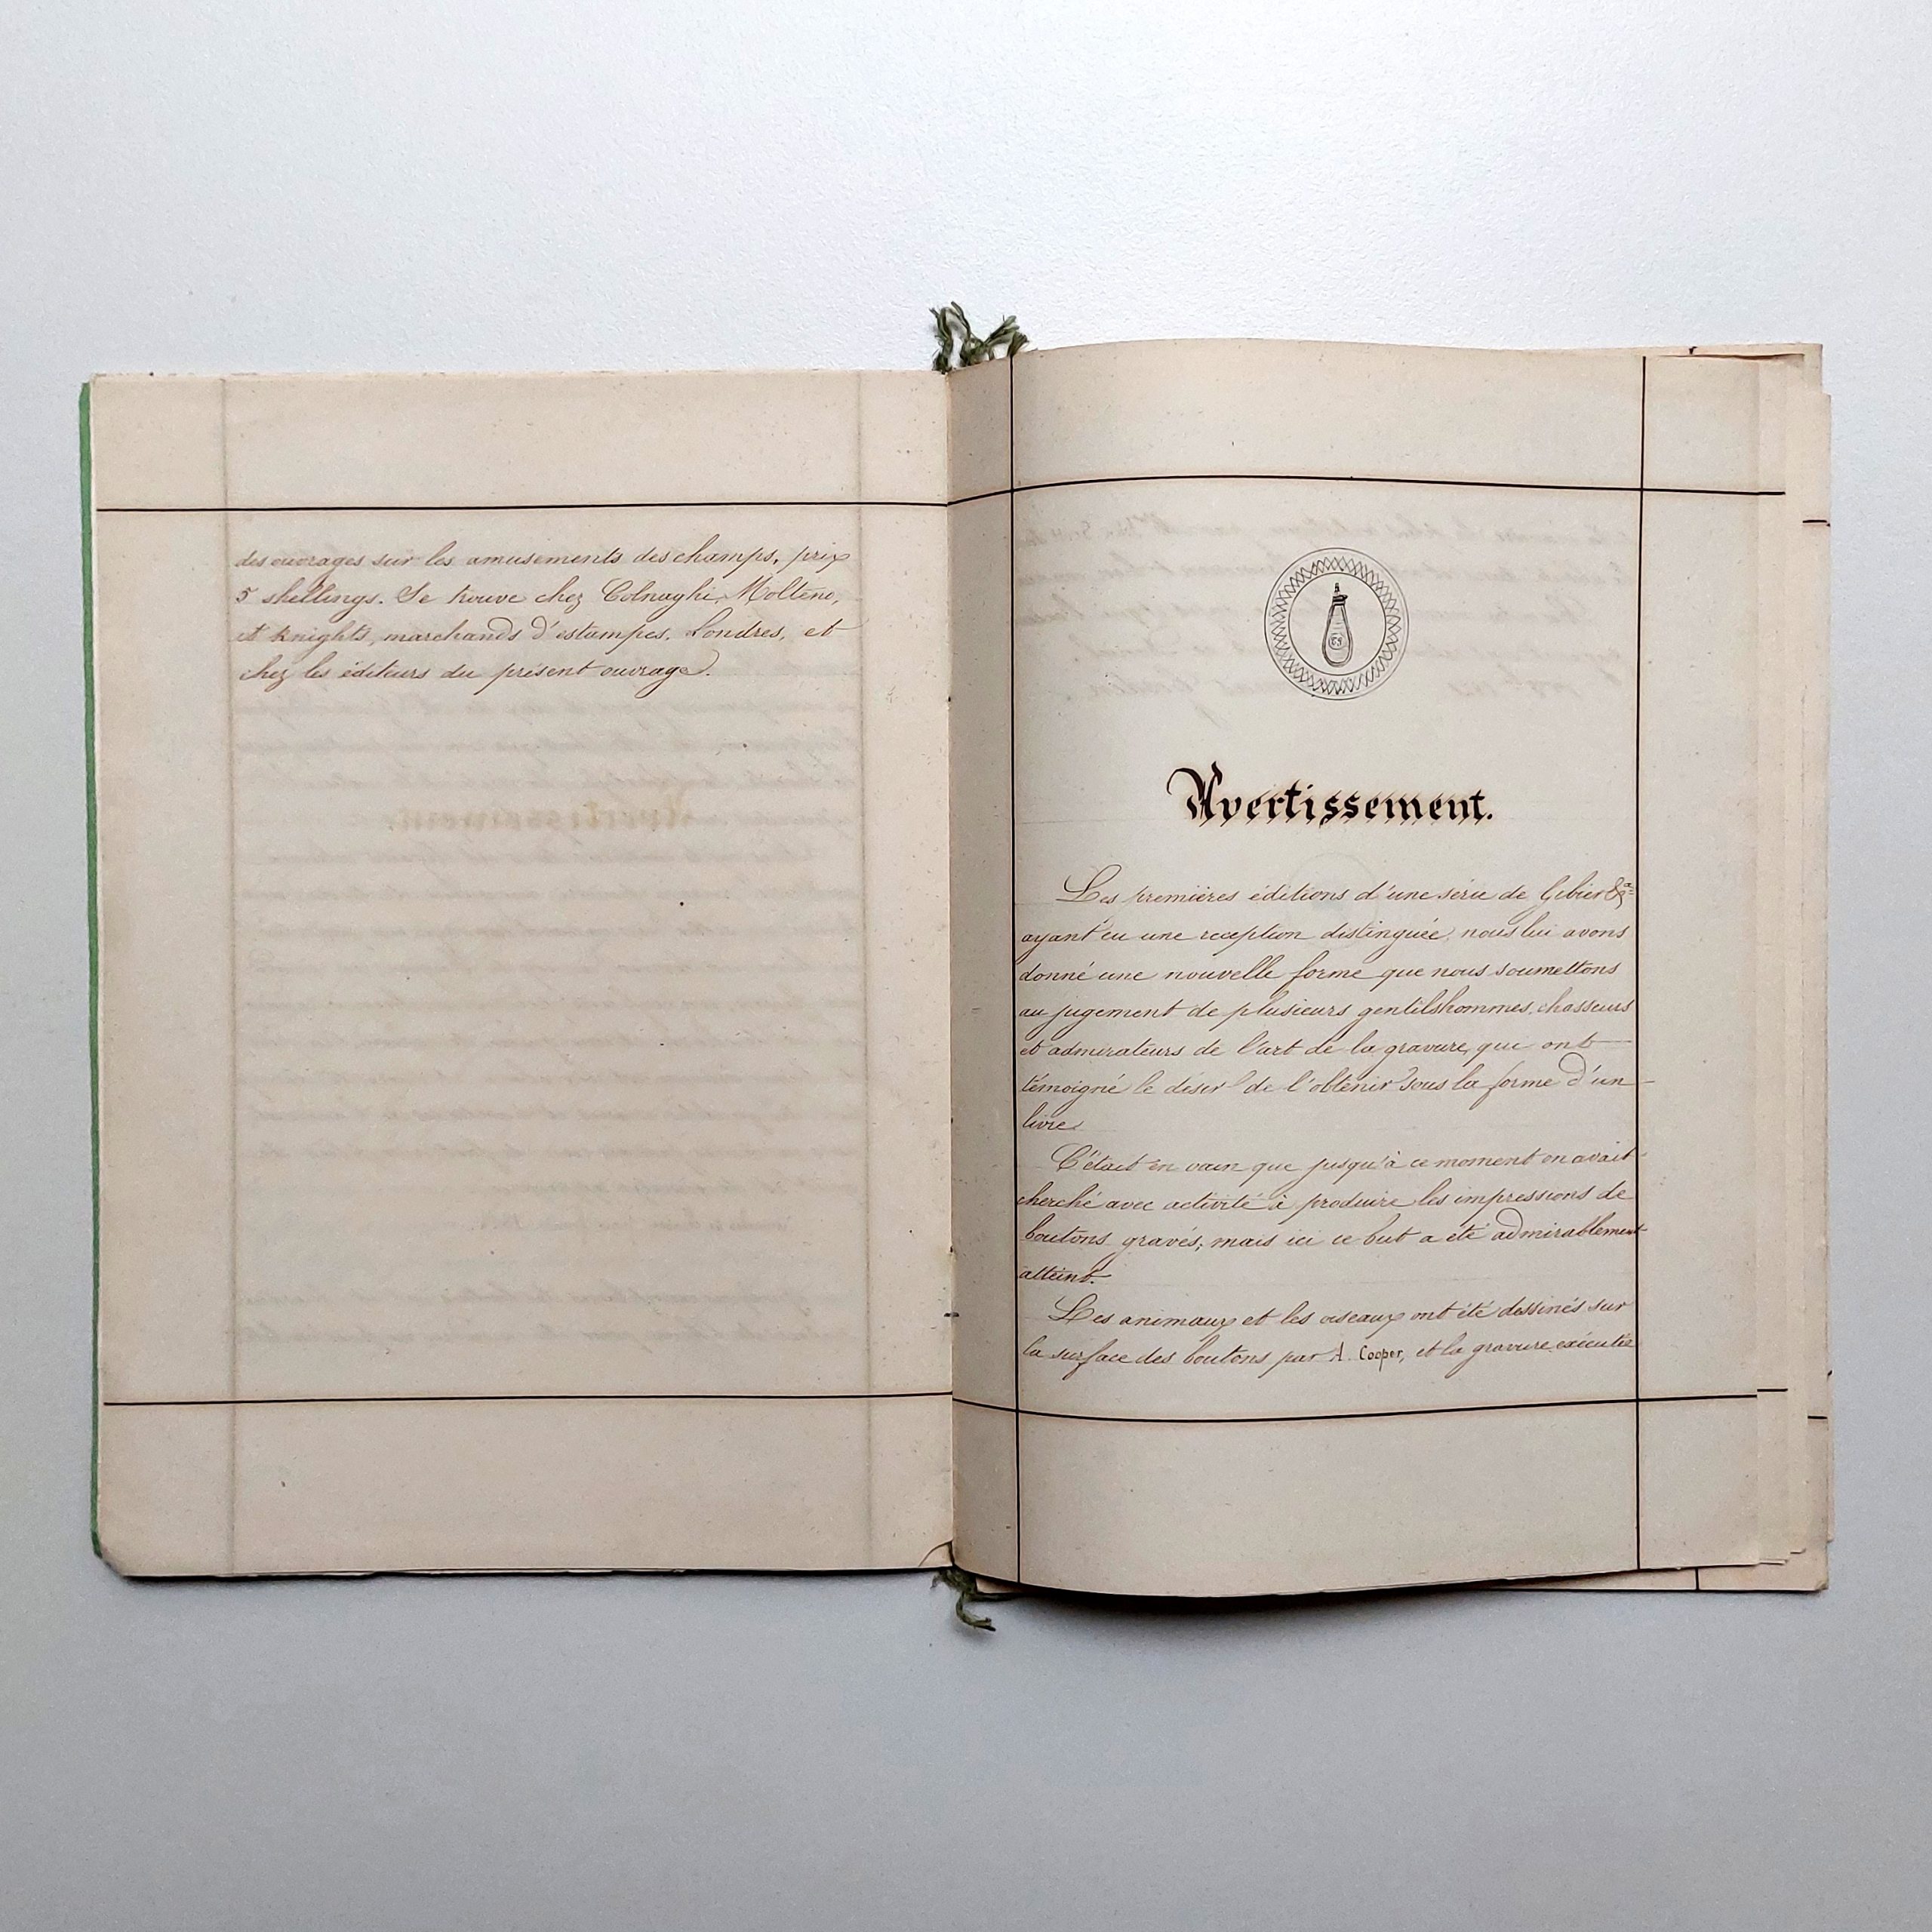 des ouvrages sur les amusements des champs, prix
5 shellings. Se trouve chez Colnaghi, Molteno,
et Knights, marchands d'estampes, Londres, et
chez les éditeurs du présent ouvrage.
Avertissement.
Les premières éditions d'une série de Gibier &a
ayant eu une reception distinguée, nous lui avons
donné une nouvelle forme que nous soumettons
au jugement de plusieurs gentilshommes, chasseurs
et admirateurs de l'art de la gravure, qui ont
témoigné le désir de l'obtenir sous la forme d'un
livre.
C'était en vain que jusqu'à ce moment on avait
cherché avec activité à produire les impressions de
boutons gravés; mais ici ce but a été admirablement
atteint.
Les animaux et les oiseaux ont été dessinés sur
la surface des boutons par A. Cooper, et la gravure exécutée